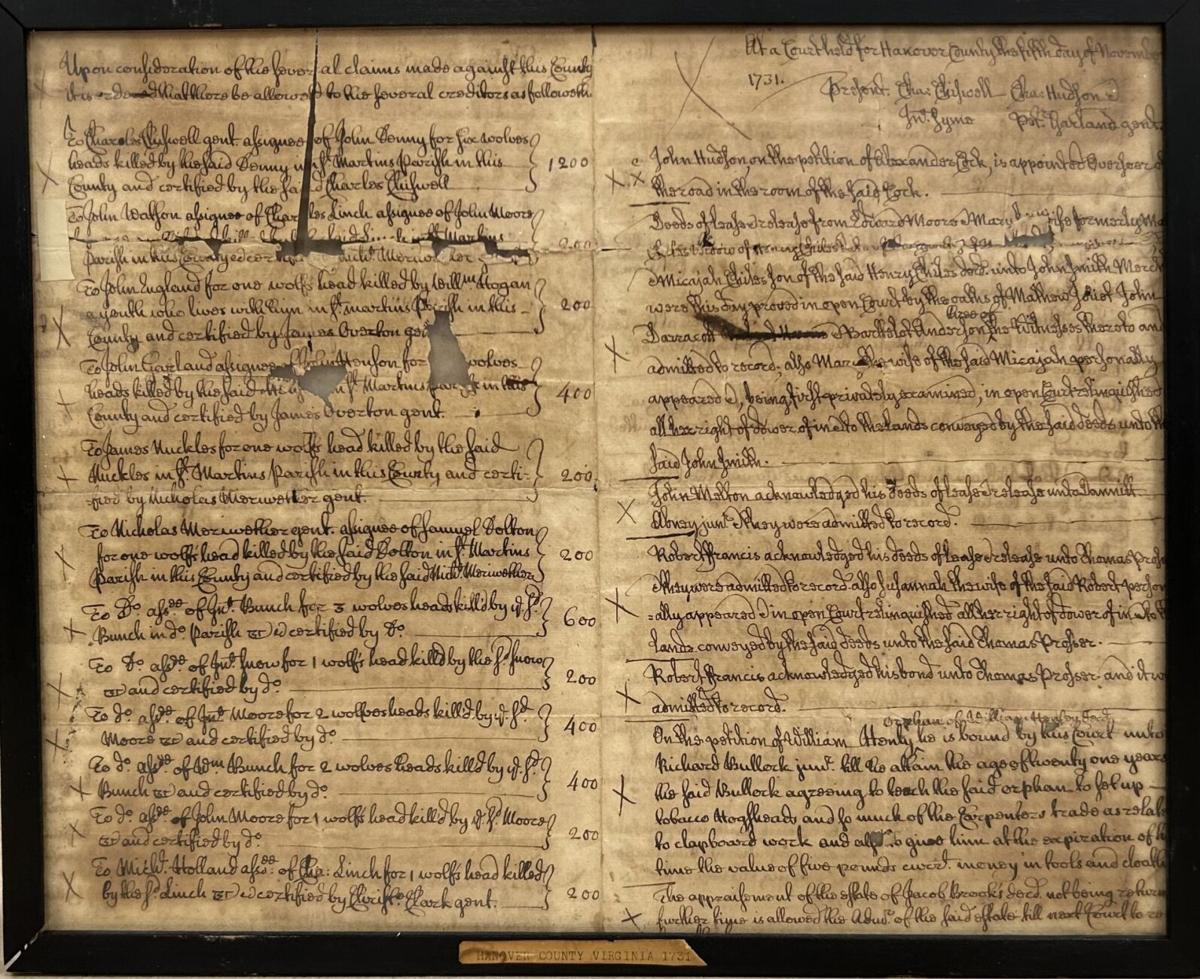 Upon consideration of the several claims made against this County
it is ordered that there be allowed to the several creditors as followeth.
To Charles Chiswell gent. assignee of John Denny for six wolves
heads killed by the said Denny in St. Martins Parish in this
County and certified by the said Charles Chiswell } 1200
To John Watson assignee of Charles Linch assignee of John Moore
Martins
Parish in this County & cer Meriwether } 200
To John England for one wolfs head killed by Willm Hogan
a youth who lives with him in St. Martins Parish in this
County and certified by James Overton gent } 200
To John Garland assignee Henson for wolves
heads killed by the said in St. Martins Parish in this
County and certified by James Overton gent. } 400
To James Nuckles for one wolfs head killed by the said
Nuckles in St. Martins Parish in this County and certi-
-fied by Nicholas Meriwether gent. } 200
To Nicholas Meriwether gent. assignee of Samuel Bolton
for one wolfs head killed by the said Bolton in St. Martins
Parish in this County and certified by the said Nich. Meriwether } 200
To Do. assee of Jno. Bunch for 3 wolves heads kill'd by ye sd.
Bunch in do. Parish &c & certified by do. } 600
To Do. assee of Jno. Snow for 1 wolfs head kill'd by the sd. Snow
&c and certified by do. } 200
To do. assee. of Jno. Moore for 2 wolves heads kill'd by ye sd.
Moore &c and certified by do. } 400
To do. assee. of Wm Bunch for 2 wolves heads kill'd by ye sd.
Bunch &c and certified by do. } 400
To do. assee of John Moore for 1 wolfs head kill'd by ye sd. Moore
&c and certified by do. } 200
To Michl. Holland assee. of Cha: Linch for 1 wolfs head killed
by the sd. Linch &c & certified by Christo. Clark gent. } 200
At a Court held for Hanover County the fifth day of Novem
1731.
Present. Chas. Chiswell Chas Hudson
Jno. Syme Petr. Garland gent.
John Hudson on the petition of Alexander Cock, is appointed Overseer o
the road in the room of the said Cock.
Deeds of lease & release from Edward Moore & Mary his wife formerly
Micajah Chiles son of the said Henry Chiles decd. unto John Smith Merch
were this day proved in open Court by the oaths of Mathew Jouet John
Darracott Barthelot Anderson the witnesses thereto and
admitted to record; also the wife of the said Micajah personally
appeared &, being first privately examined, in open Court relinquished
all her right of dower of in & to the lands conveyed by the said deeds unto th
said John Smith.
John Melton acknowledged his deeds of lease & release unto Dannitt
Abney junr. & they were admitted to record.
Robert Francis acknowledged his deeds of lease & release unto Thomas Pross
& they were admitted to record also Susannah the wife of the said Robert person
=ally appeared & in open Court relinquished all her right of dower of in & to t
lands conveyed by the said deeds unto the said Thomas Prosser.
Robert Francis acknowledged his bond unto Thomas Prosser and it w
admitted to record.
orphan of William Henley
On the petition of William Henly he is bound by this Court unto
Richard Bullock junr. till he attain the age of twenty one years
the said Bullock agreeing to teach the said orphan to set up
tobacco Hogsheads and so much of the Carpenters trade as relat
to clapboard work and also to give him at the expiration of h
time the value of five pounds curr. money in tools and cloath
The appraisment of the estate of Jacob Brooks decd. not being return
further time is allowed the Admr. of the said estate till next Court to re
HANOVER COUNTY VIRGINIA 1731